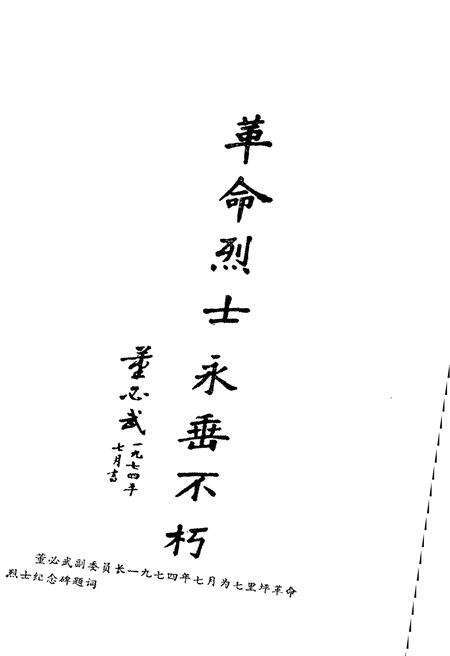 革命烈士永垂不朽
董必武
一九七四年
七月书
董必武副委员长一九七四年七月为七里坪革命
烈士纪念碑题词